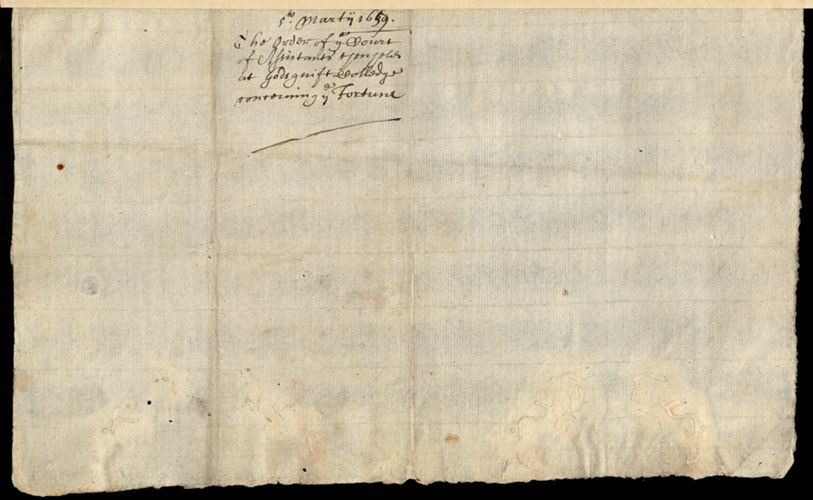 5to Martij 1659.
The Order of ye Court
of Assistants then held
at Godsguift Colledge
concerning ye Fortune